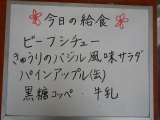 今日の給食
ビーフシチュー
きゅうりのバジル風味サラダ
パインアップル(缶)
黒糖コッペ・牛乳